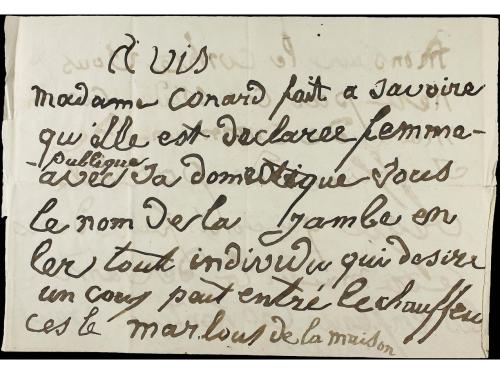 avis
madame conard fait a savoire
qu'ille est declaree femme
publique
avec sa domestique sous
le nom de la jambe en
ler tout individu qui desire
un coup peut entré le chauffeu
ces le marlous de la maison